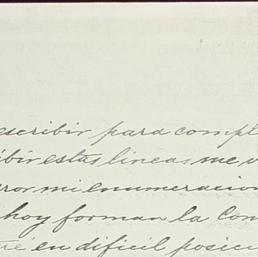 escribir para compl
ibir estas lineas, me v
error mi enumeracion
hoy forman la Com
en dificil posici